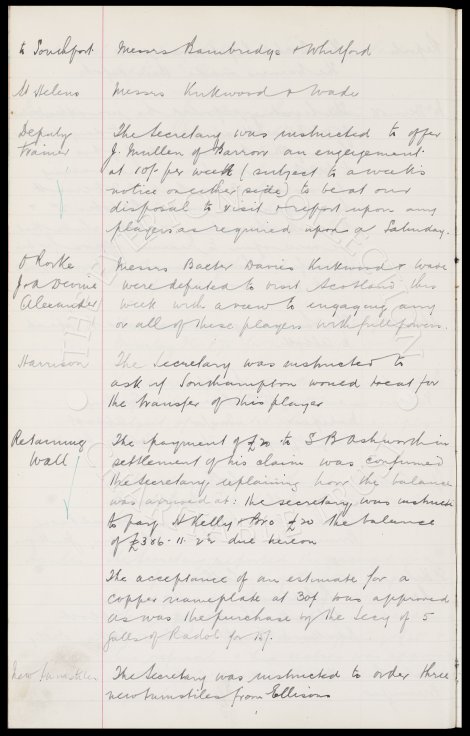 to Southport Messrs Bainbridge & Whitford
St Helens Messrs Kirkwood & Wade
Deputy The Secretary was instructed to offer
Trainer J. Mullen of Barrow an engagement
at 10/- per week (subject to a weeks
notice on either side) to be at our
disposal to visit & report upon any
players as required upon a Saturday.
O Rorke Messrs Baxter Davies Kirkwood & Wade
Jos Devine were deputed to visit Scotland this
Alexander week with a view to engaging any
or all of these players with full powers.
Harrison The Secretary was instructed to
ask if Southampton would treat for
the transfer of this player
Retaining The payment of £20 to S B Ashworth in
Wall settlement of his claim was confirmed
the Secretary explaining how the balance
was arrived at: the secretary was instructed
to pay H Kelly & Bro £20 the balance
of £306. 11. due hereon
The acceptance of an estimate for a
copper nameplate at 30/- was approved
as was the purchase by the Secy of 5
galls of for 15/-.
New Turnstiles The Secretary was instructed to order three
new turnstiles from Ellisons